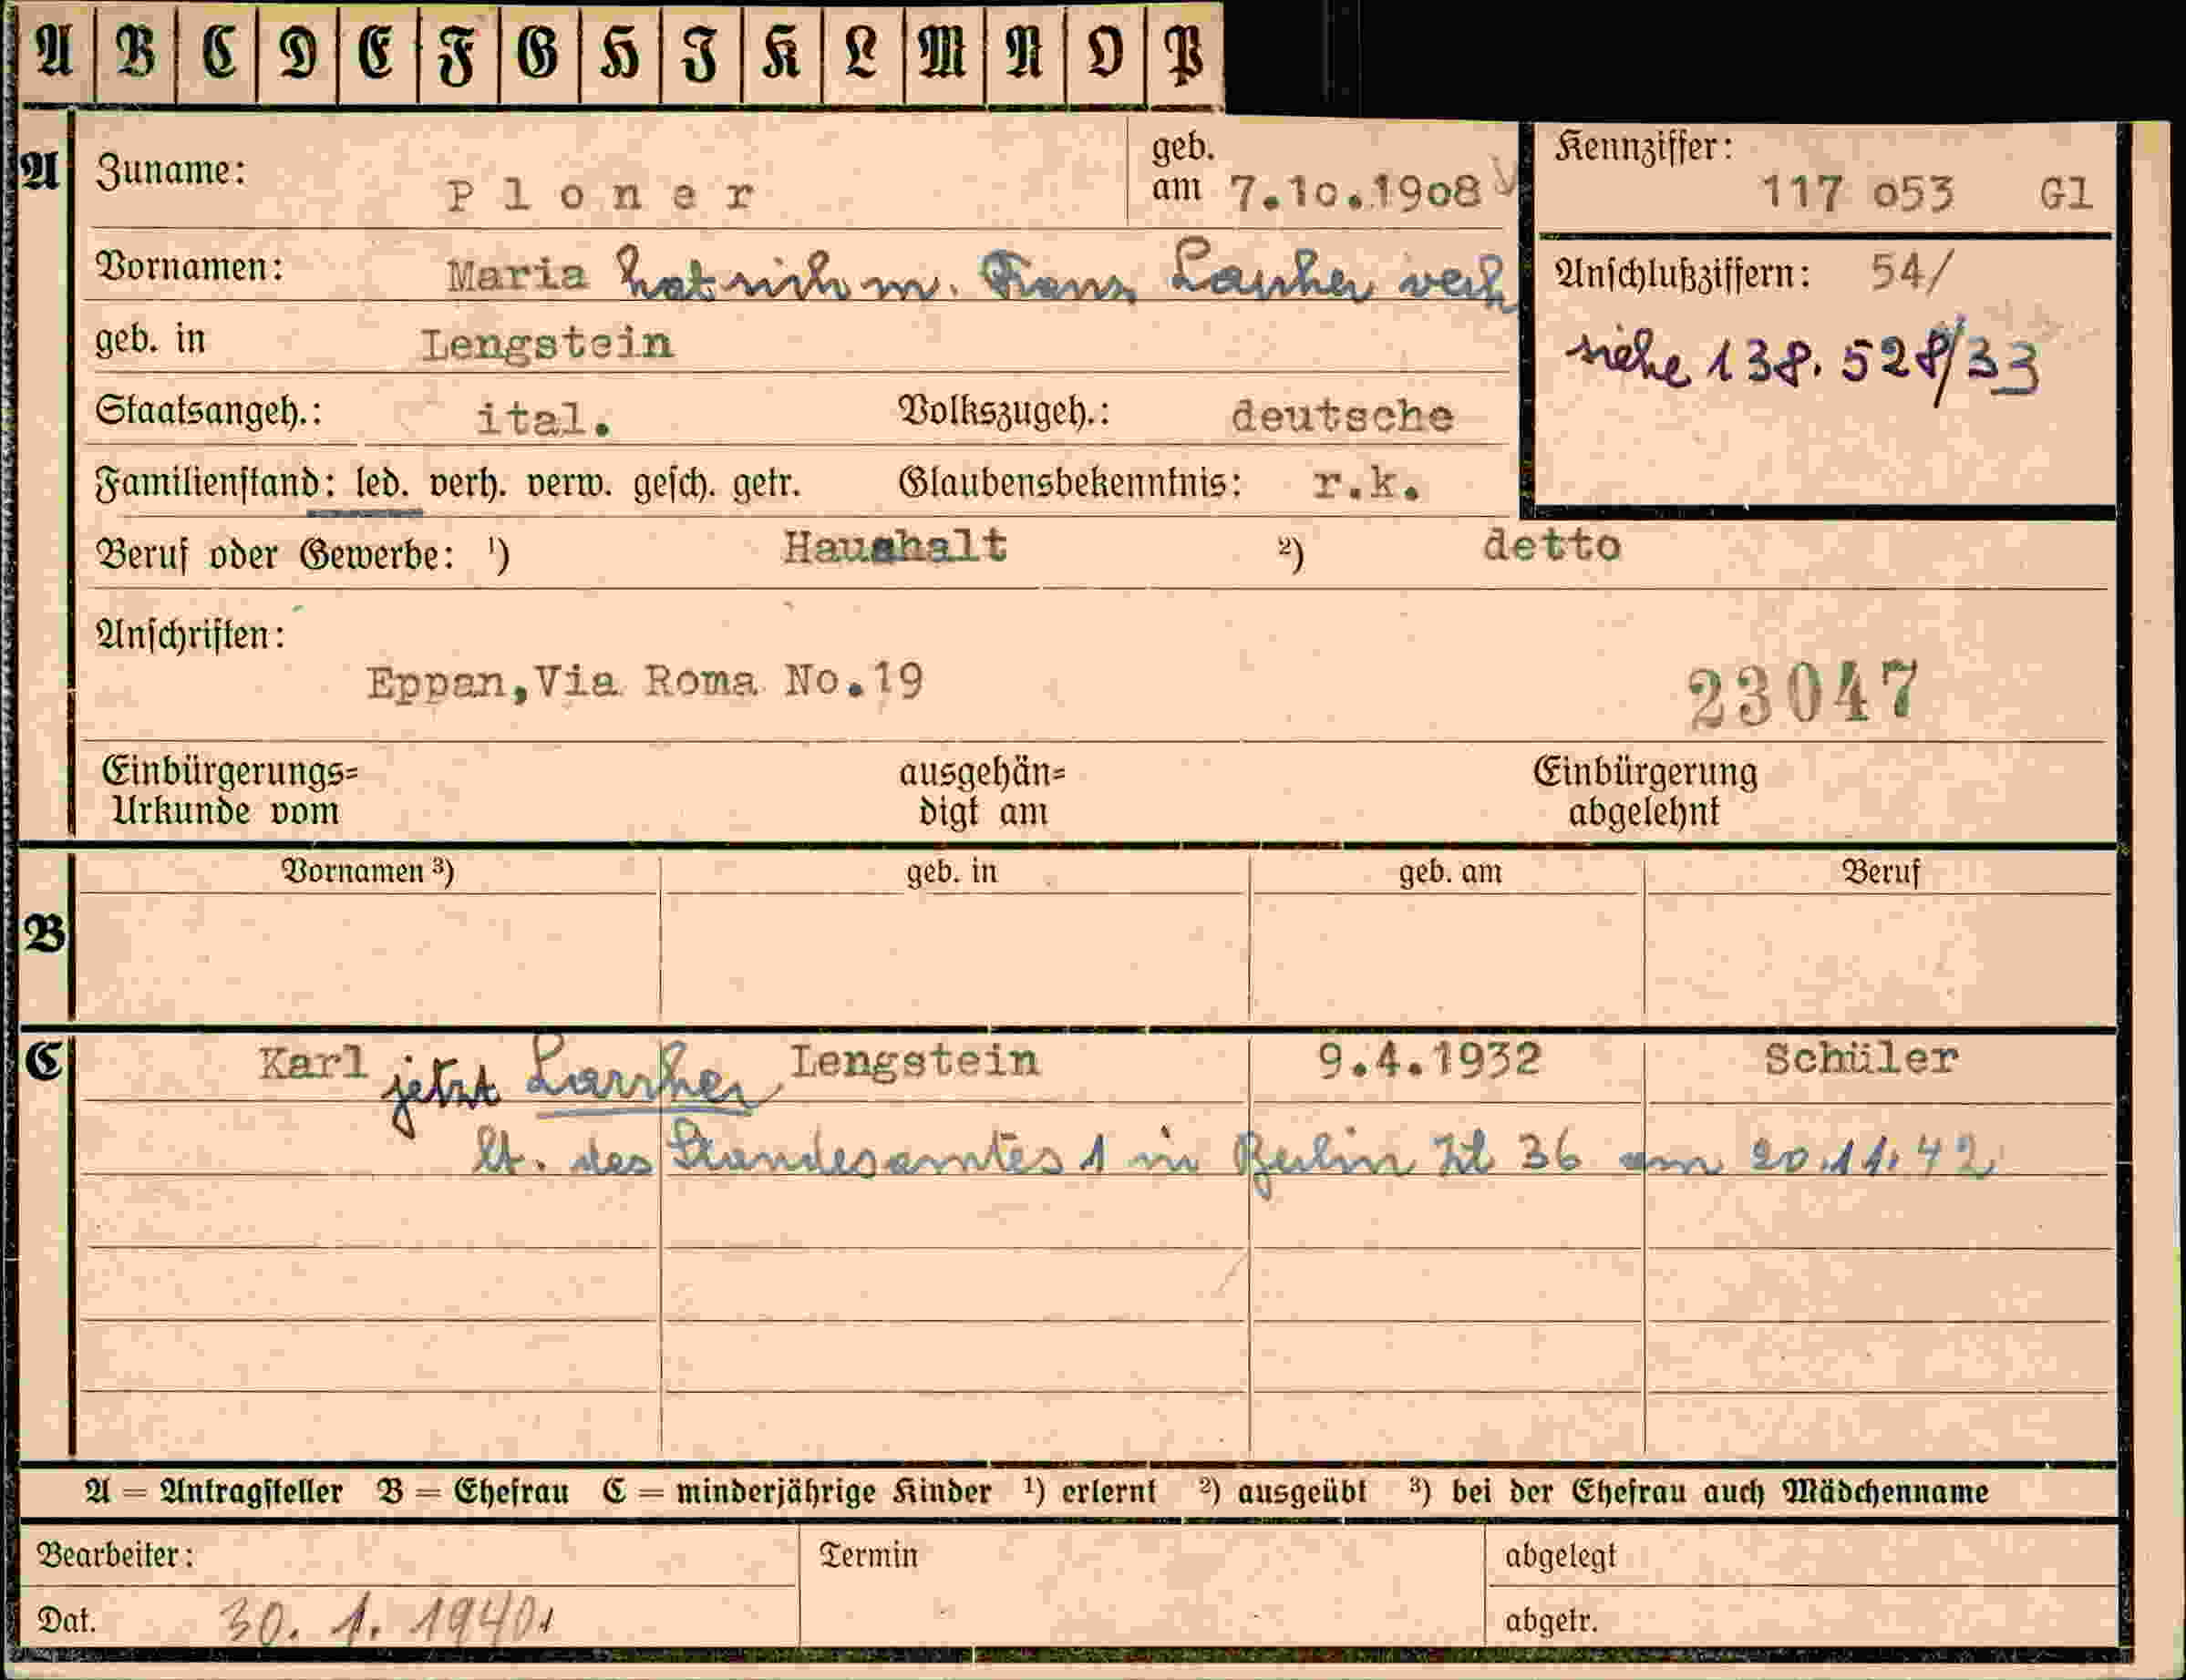 A B C D E F G H I K L M N O P
A Zuname: Ploner geb. am 7.10.1908
Kennziffer: 117 053 Gl
Vornamen: Maria hat sich m. Franz Larcher verh
Anschlußziffern: 54/
siehe 138.528/33
geb. in Lengstein
Staatsangeh.: ital. Volkszugeh.: deutsche
Familienstand: led. verh. verw. gesch. getr. Glaubensbekenntnis: r.k.
Beruf oder Gewerbe: ¹) Haushalt ²) detto
Anschriften:
Eppan, Via Roma No.19 23047
Einbürgerungs= ausgehän= Einbürgerung
Urkunde vom digt am abgelehnt
Vornamen ³) geb. in geb. am Beruf
B
C Karl jetzt Larcher Lengstein 9.4.1932 Schüler
lt. des Standesamtes 1 in Berlin 36 am 20.11.42
A = Antragsteller B = Ehefrau C = minderjährige Kinder ¹) erlernt ²) ausgeübt ³) bei der Ehefrau auch Mädchenname
Bearbeiter: Termin abgelegt
Dat. 30. 1. 1940 abgetr.